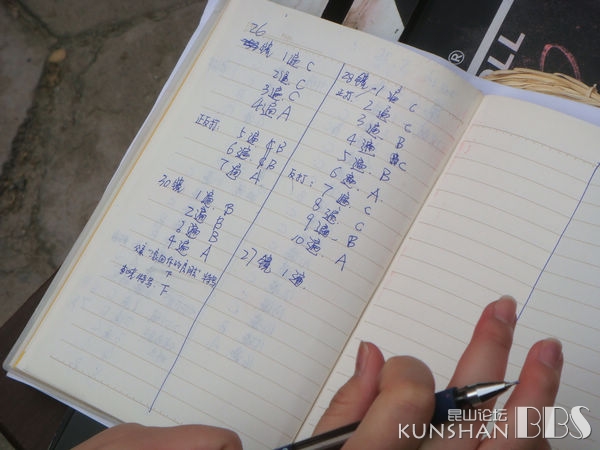 26
镜 1遍 C
2遍 C
3遍 C
4遍 A
正反打:
5遍 B
6遍 B
7遍 A
30镜 1遍. B
2遍. B
3遍 B
4遍 A
特写
下
特写. 下
29镜 1遍 C
正打: 2遍. C
3遍. B
4遍. C
5遍. B
6遍. A
反打: 7遍. C
8遍. C
9遍. B
10遍. A
27镜 1遍.
®
770
昆山论坛
KUNSHAN BBS